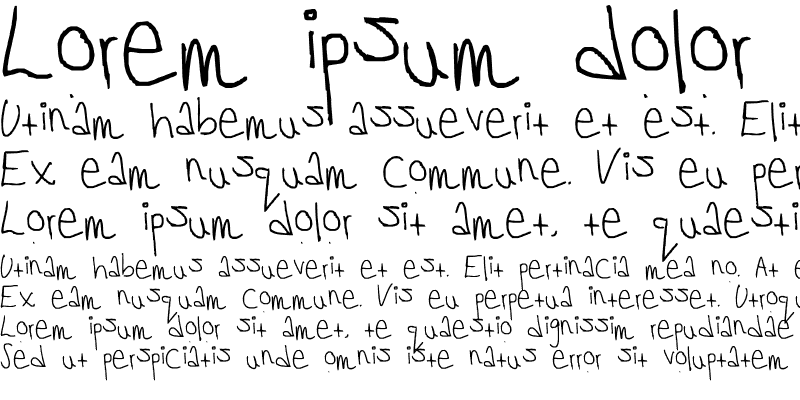 Lorem ipsum dolor
Utinam habemus assueverit et est. Elit
Ex eam nusquam commune. Vis eu per
Lorem ipsum dolor sit amet, te quaesti
Utinam habemus assueverit et est. Elit pertinacia mea no. At e
Ex eam nusquam commune. Vis eu perpetua interesset. Utroqu
Lorem ipsum dolor sit amet, te quaestio dignissim repudiandae
Sed ut perspiciatis unde omnis iste natus error sit voluptatem